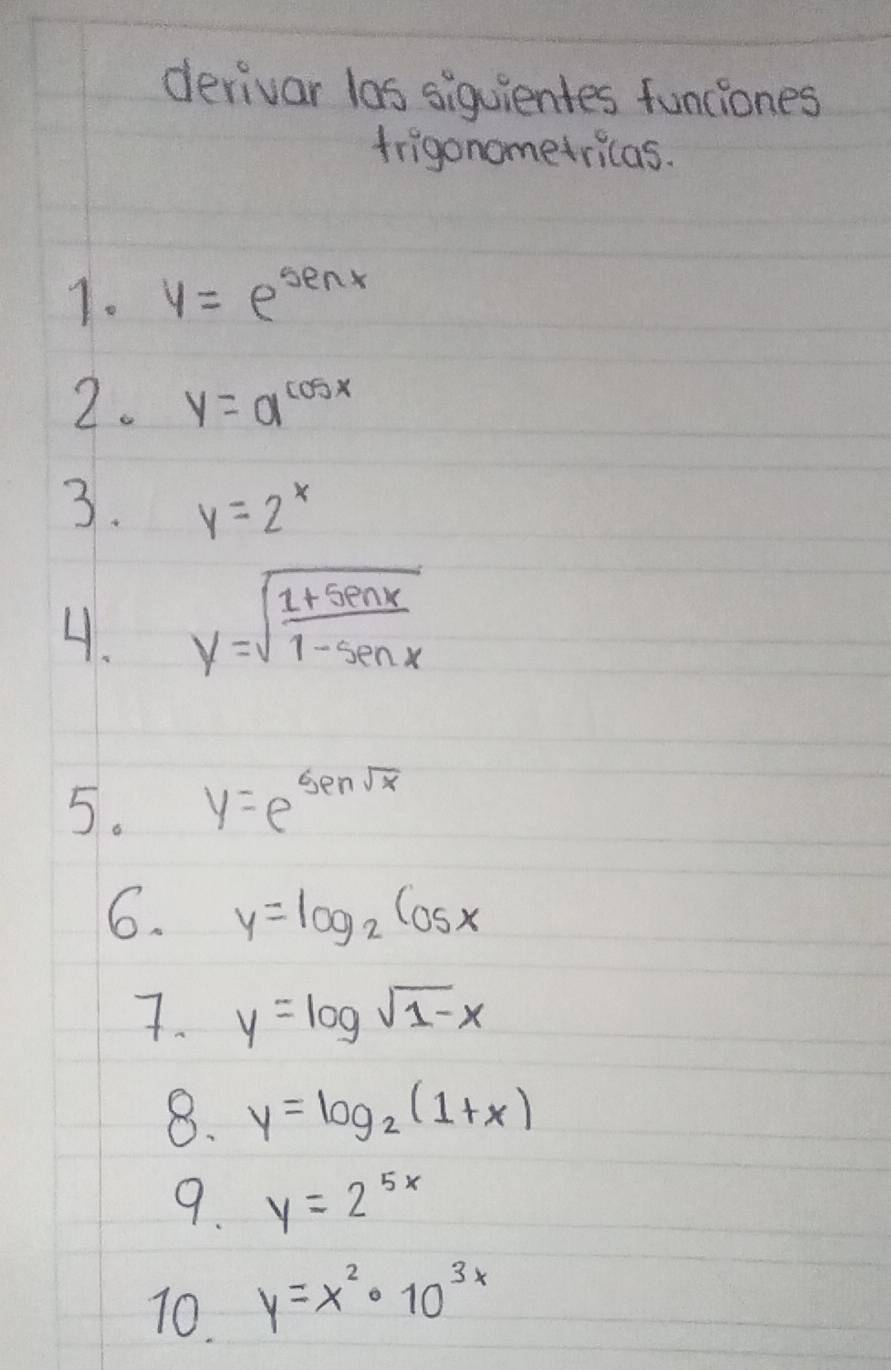 derivar las siguientes funciones
trigonometricas.
1. y = e^senx
2. y = a^cosx
3. y = 2^x
4. y = √((1+senx)/(1-senx))
5. y = e^sen√x
6. y = log₂ Cosx
7. y = log √1-x
8. y = log₂ (1+x)
9. y = 2^5x
10. y = x² • 10^3x